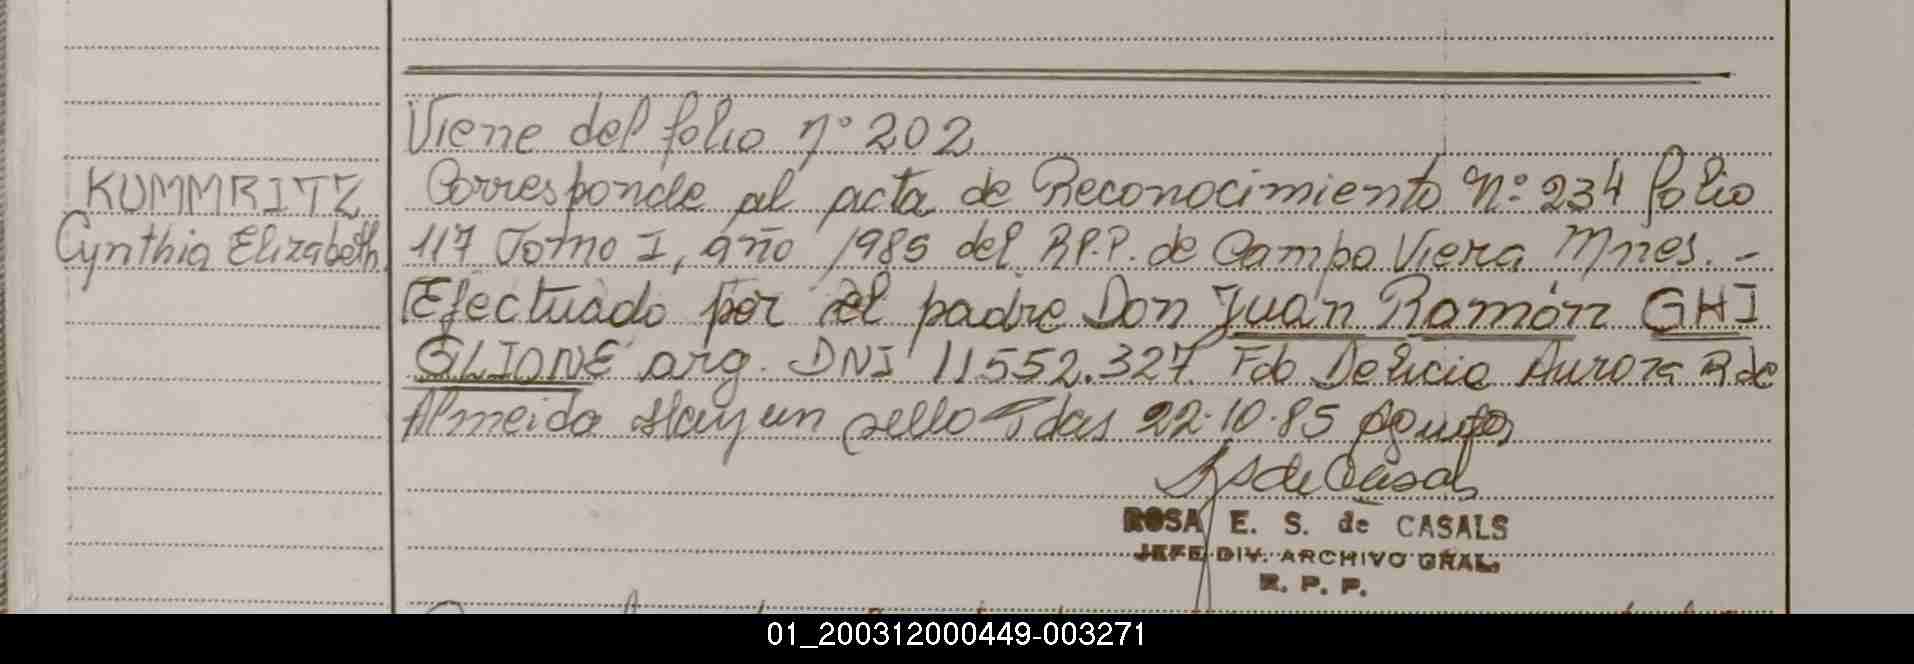 Viene del folio nº 202
KUMMRITZ
Cynthia Elizabeth
Corresponde al acta de Reconocimiento Nº: 234 folio
117 Tomo I, año 1985 del R.P.P. de Campo Viera Mnes. -
Efectuado por el padre Don Juan Ramón GHI
GLIONE arg. DNI 11552.327 Fdo Delicia Aurora R de
Almeida Hay un sello Pdas 22.10.85
ROSA E. S. de CASALS
JEFE DIV. ARCHIVO GRAL.
R. P. P.
01_200312000449-003271